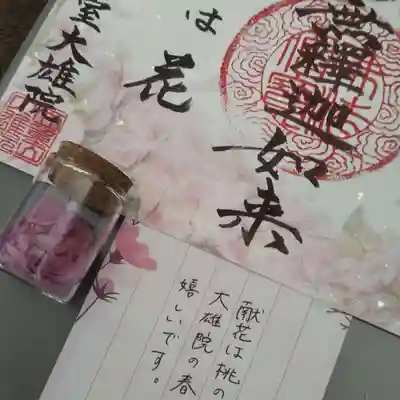 無釋迦如来
は
花
室大雄院
献花は桃の
大雄院の春
嬉しいです。